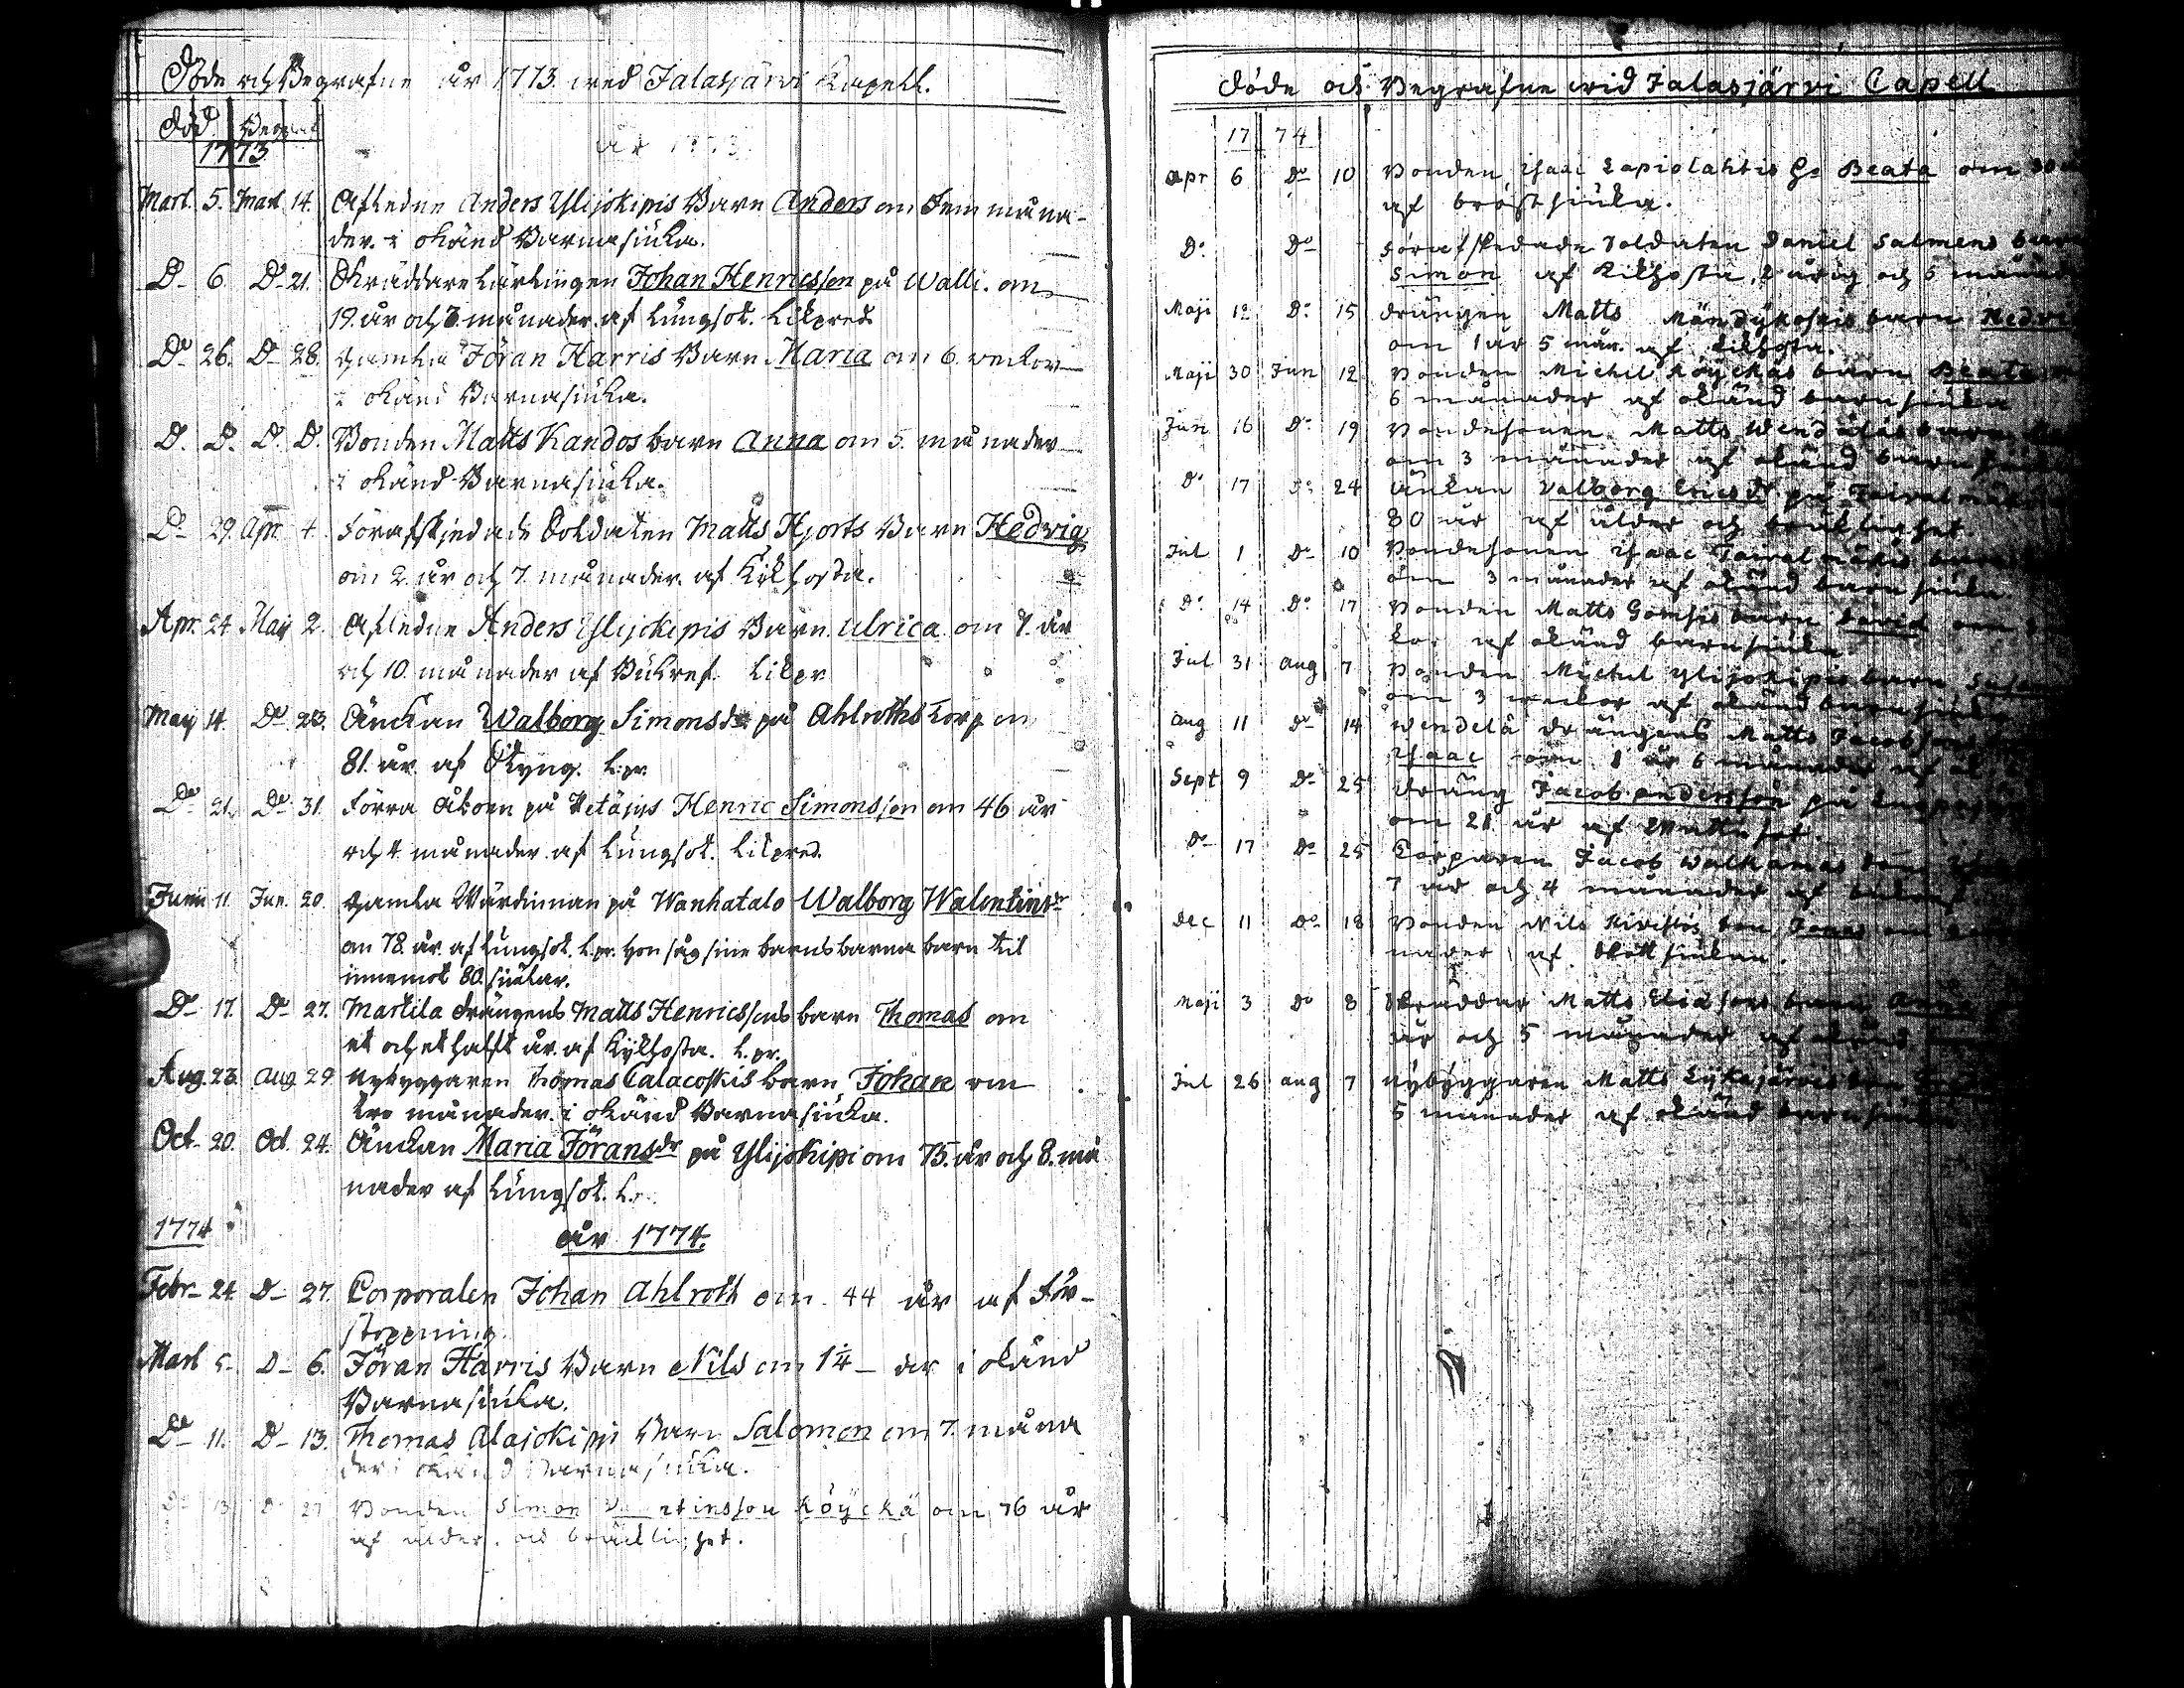 Döde och Begrafne år 1773 wed Jalasjärvi Kapell.
Död Begraf
1773 år 1773
Mart. 5. Mart. 14. Afledne Anders Ylijokipis Barn Anders om Fem måna-
der. i okänd Barnasiuka.
D° 6. D° 21. Skräddare Lärlingen Johan Henricsson på Walli. om
19. år och 3. månader. af Lungsot. Likpred.
D° 26. D° 28. gamla Jöran Harris Barn Maria om 6. weckor
i okänd Barnasiuka.
D. D. D. D. Bonden Matts Kandos barn Anna om 5. månader
i okänd Barnasiuka.
D° 29. Apr. 4. Förafskjedade Soldaten Matts Hjorts Barn Hedvig
om 2. år och 7. månader. af Kikhosta.
Apr. 24 Maij 2. Afledne Anders Ylijokipis Barn Ulrica om 7. år
och 10. månader af Bukref. Likpr.
Maij 14. D° 23. Änckan Walborg Simonsdr på Ahlroths torp om
81. år. af Styng. L.pr.
D° 21. D° 31. Förra Åboen på Ketäjys Henric Simonsson om 46 år
och 4. månader. af Lungsot. Likpred.
Junii 11 Jun. 20. gamla Wärdinnan på Wanhatalo Walborg Walentinsdr
om 78. år. af Lungsot. L.pr. hon såg sine barns barna barn til
innemot 80. siälar.
D° 17. D° 27. Martila drängens Matts Henricssons barn Thomas om
et och et halft år. af Kjkhosta. L.pr.
Aug. 23. Aug. 29 Nybyggaren Thomas Calacoskis barn Johan om
tre månader. i okänd Barnasiuka.
Oct. 20. Oct. 24. Änckan Maria Jöransdr på Ylijokipi om 75. år och 8. må
nader af Lungsot. L.
1774 år 1774.
Febr. 24. D° 27. Corporalen Johan Ahlroth om 44 år af För-
stoppning.
Mart 5. D° 6. Jöran Harris Barn Nils om 1 1/4 år i okänd
Barnasiuka.
D° 11. D° 13. Thomas Alajokipis Barn Salomon om 7. måna
der i okänd Barnasiuka.
D° 13 D° 27 Bonden Simon köyckä om 76 år
af ålder och bräcklighet.
Döde och Begrafne wid Jalasjärvi Capell
17 74
Apr 6 D° 10 Bonden Isaac Lapiolahtis H° Beata om 30
af bröstsiuka.
D° D° Förafskedade Soldaten Daniel Salmens barn
Simon af kikhosta, 2 årig och 6 månader
Maji 12 D° 15 drängen Matts Mändykoskis barn Hedvi
om 1 år 5 mån. af kikhosta.
Maji 30 Jun 12 Bonden Michel Köyckäs barn Beata
6 månader af okänd barnsiuka
Jun 16 D° 19 Bondesonen Matts Wendeläs barn
om 3 månader af okänd barnsiuka
D° 17 D° 24 Änkan Valborg Ericsdr på Taivalmäki
80 år af ålder och bräklighet.
Jul 1 D° 10 Bondesonen Isaac Taivalmäkis barn
om 3 månader af okänd barnsiuka.
D° 14 D° 17 Bonden Matts Gomsis barn David om
kor af okänd barnsiuka.
Jul 31 Aug 7 Bonden Michel Ylijokipis barn
om 3 weckor af okänd barnsiuka
Aug 11 D° 14 Wendelä drängens Matts Jacobsons
Isaac om 1 år 6 månader af
Sept 9 D° 25 Dräng Jacob Andersson på
om 21 år af
D° 17 D° 25 Torparen Jacob Walkamas
7 år och 4 månader af
Dec 11 D° 18 Bonden Nils Kivistös son Jonas om
nader af Bröstsiukan.
Maji 3 D° 8 Skräddar Matts Eliassons barn Anna
år och 5 månader af okänd
Jul 26 Aug 7 Nybyggaren Matts Lykajärvis
5 månader af okänd barnsiuka